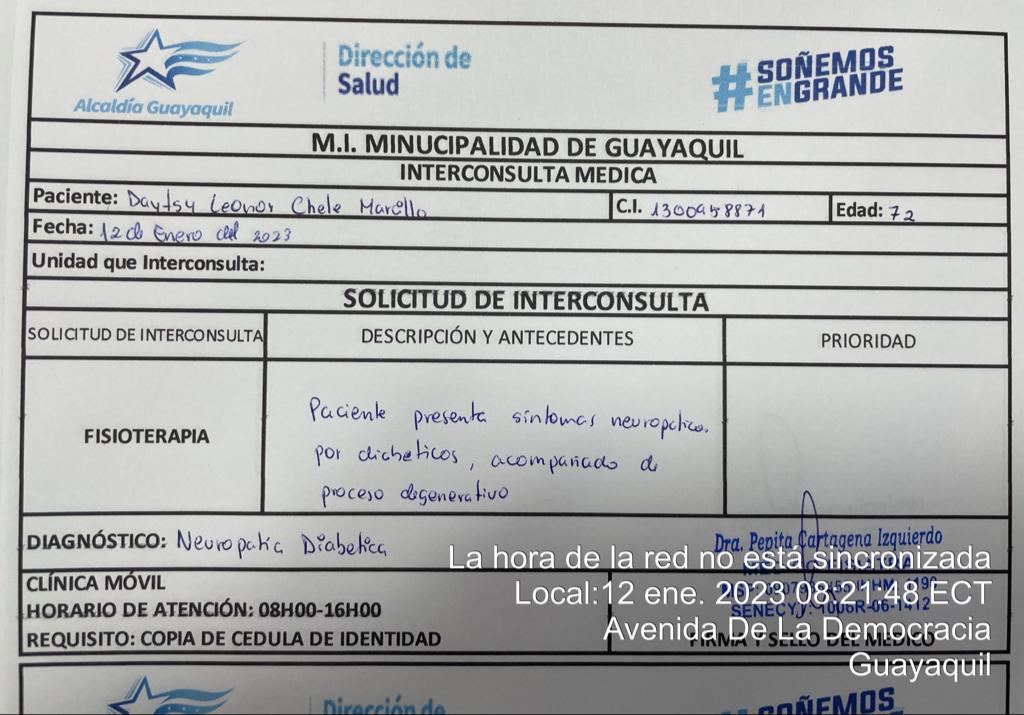 Alcaldía Guayaquil
Dirección de
Salud
#SOÑEMOS
ENGRANDE
M.I. MINUCIPALIDAD DE GUAYAQUIL
INTERCONSULTA MEDICA
Paciente: Daytsy Leonor Chele Marcillo C.I. 1300958871 Edad: 72
Fecha: 12 de Enero del 2023
Unidad que Interconsulta:
SOLICITUD DE INTERCONSULTA
SOLICITUD DE INTERCONSULTA DESCRIPCIÓN Y ANTECEDENTES PRIORIDAD
FISIOTERAPIA
Paciente presenta síntomas neuropatico.
por diabeticos, acompañado de
proceso degenerativo
DIAGNÓSTICO: Neuropatia Diabetica
Dra. Pepita Cartagena Izquierdo
SENECYJ: 1006R-06-1412
CLÍNICA MÓVIL
HORARIO DE ATENCIÓN: 08H00-16H00
REQUISITO: COPIA DE CEDULA DE IDENTIDAD
FIRMA Y SELLO DEL MEDICO
La hora de la red no está sincronizada
Local:12 ene. 2023 08:21:48 ECT
Avenida De La Democracia
Guayaquil
Dirección de
#SOÑEMOS